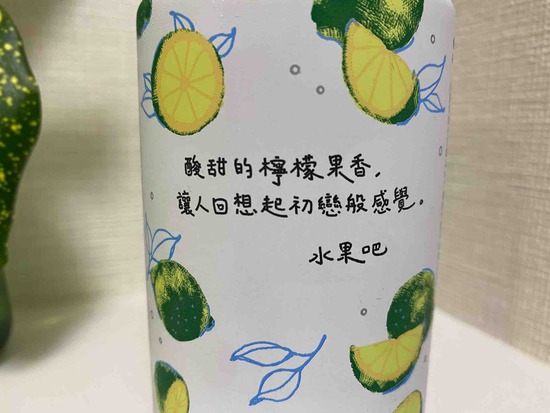 酸甜的檸檬果香，
讓人回想起初戀般感覺。
水果吧